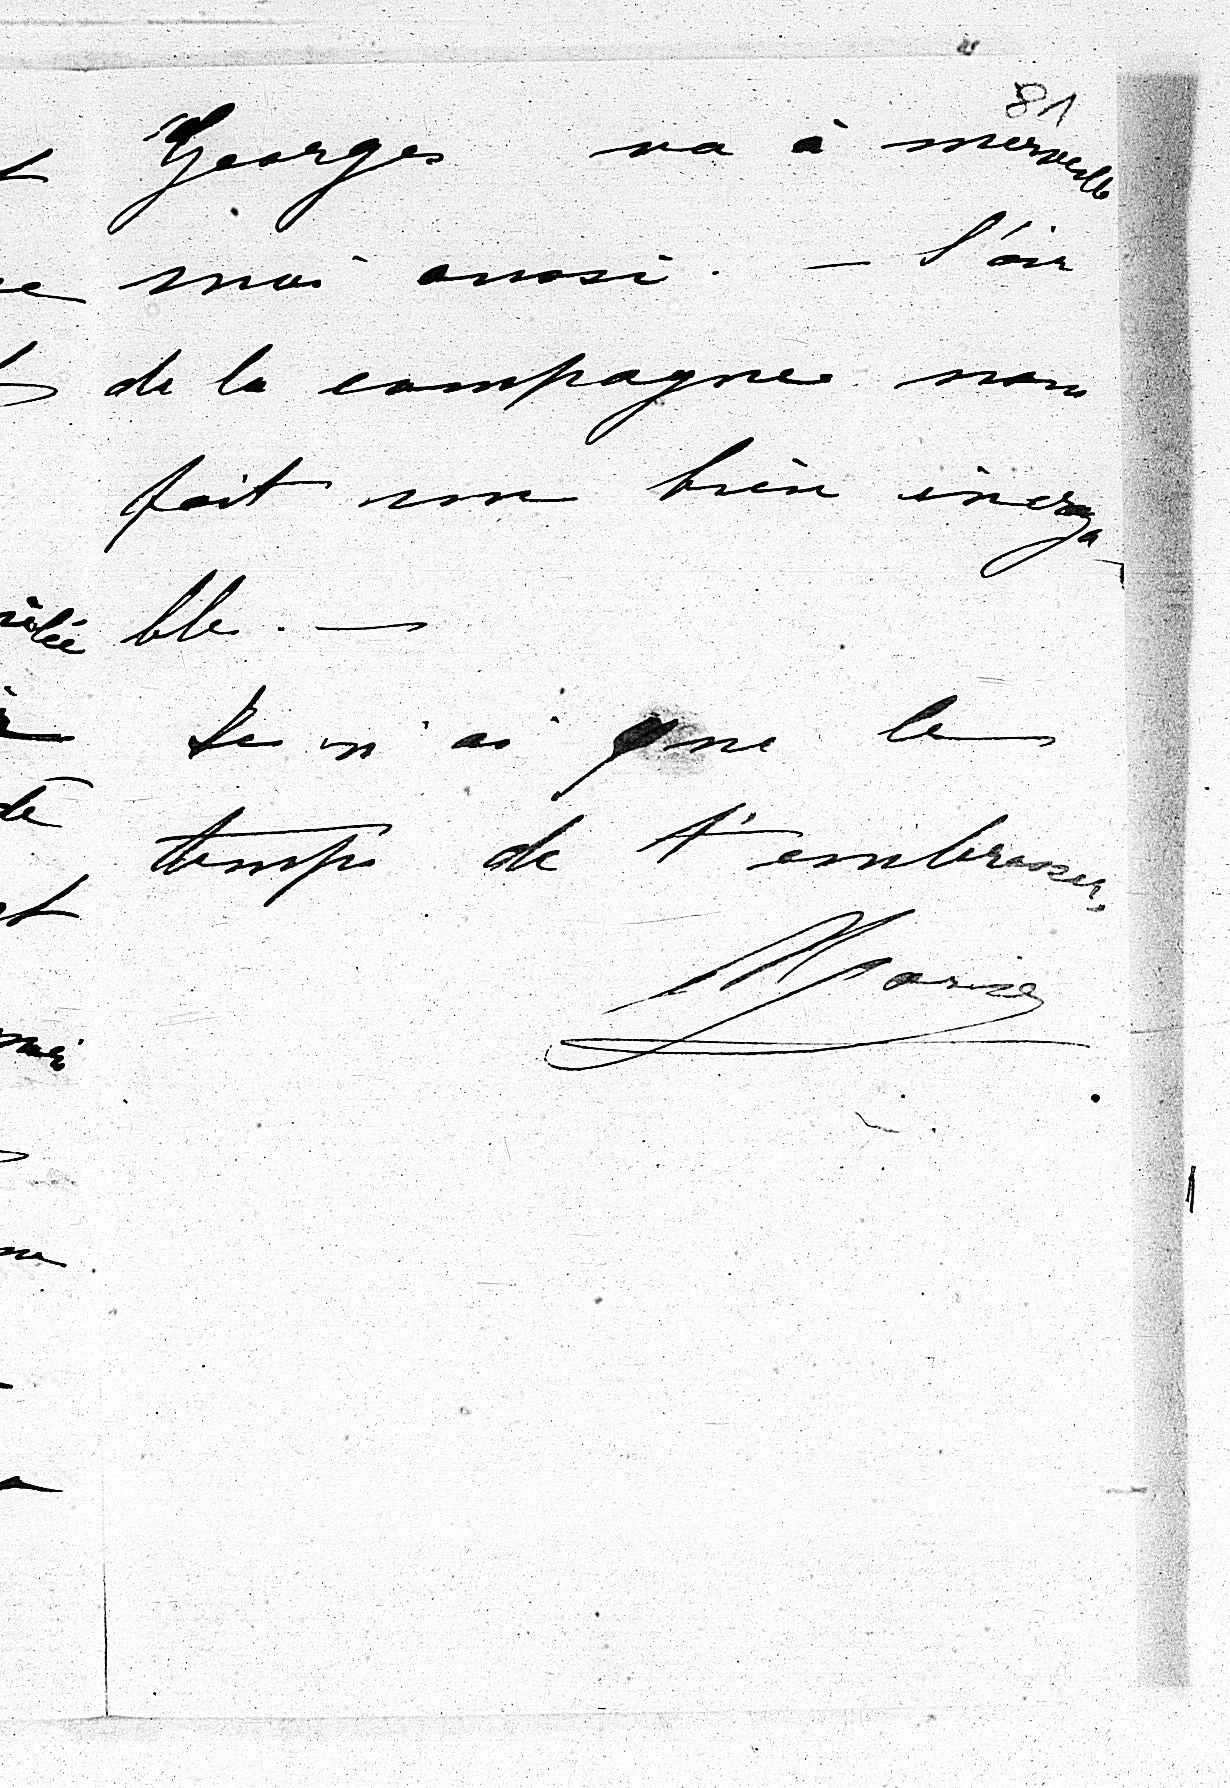 81
Georges va à merveille
moi aussi. — l'air
de la campagne nous
fait un bien incroya
ble. —
Je n'ai que le
temps de t'embrasser.
Marie